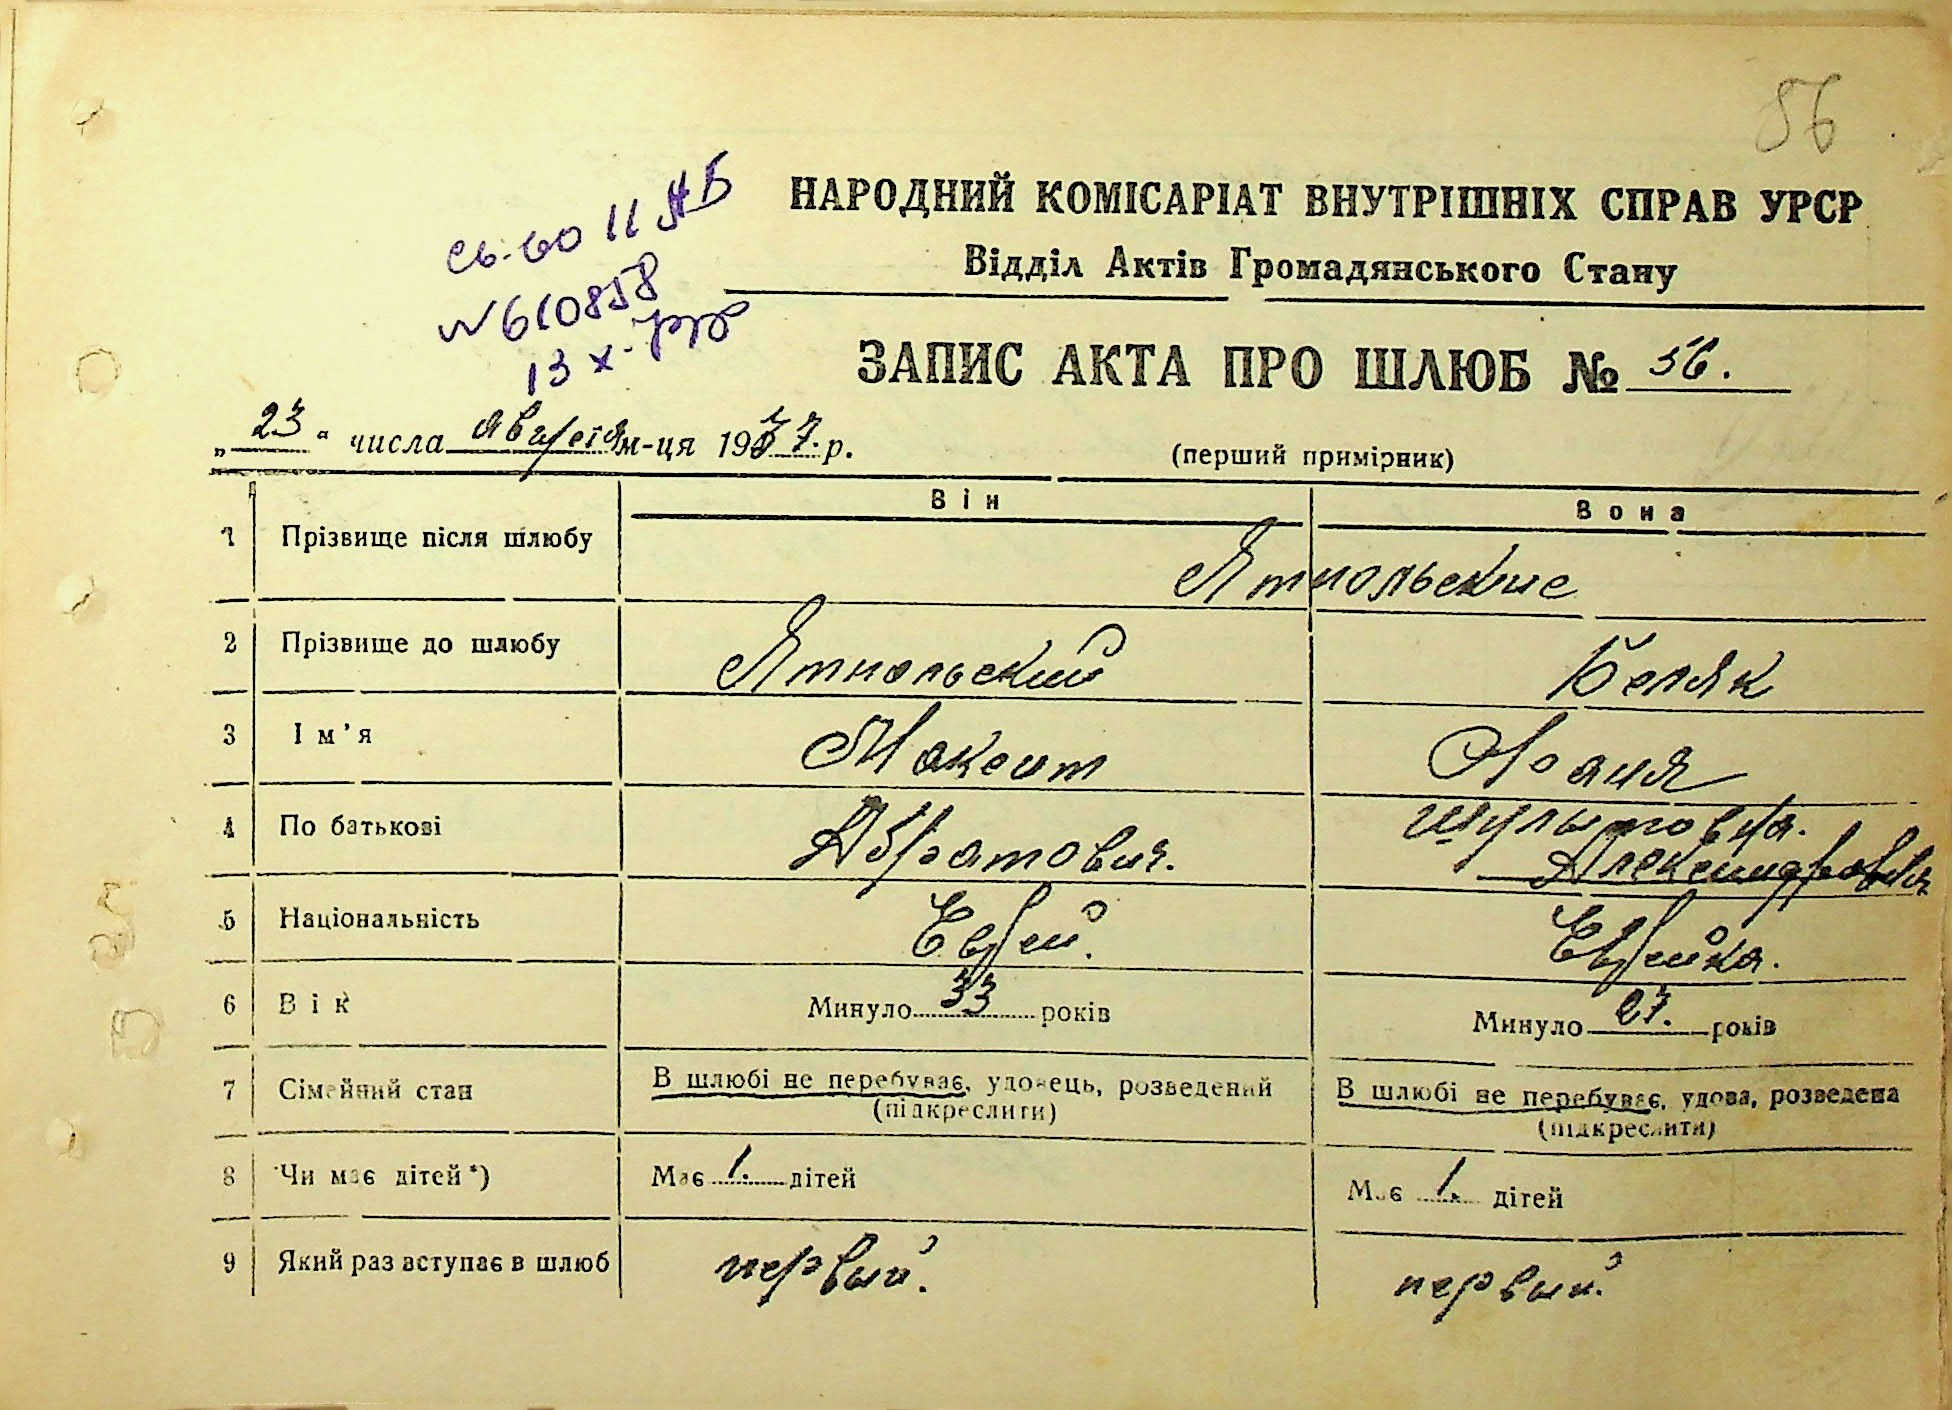 56
НАРОДНИЙ КОМІСАРІАТ ВНУТРІШНІХ СПРАВ УРСР
Відділ Актів Громадянського Стану
св-во II АБ
№ 610858
13 х.
ЗАПИС АКТА ПРО ШЛЮБ № 56.
„23“ числа августа м-ця 1937. р.
(перший примірник)
Він Вона
1 Прізвище після шлюбу Ятпольские
2 Прізвище до шлюбу Ятпольский Беляк
3 Ім'я
4 По батькові Абрамович. Шулимовна.
Александровна
5 Національність Еврей. Еврейка.
6 Вік Минуло 33 років Минуло 27. років
7 Сімейний стан В шлюбі не перебуває, удовець, розведений В шлюбі не перебуває, удова, розведена
(підкреслити) (підкреслити)
8 Чи має дітей*) Має 1. дітей Має 1. дітей
9 Який раз вступає в шлюб первый. первый.